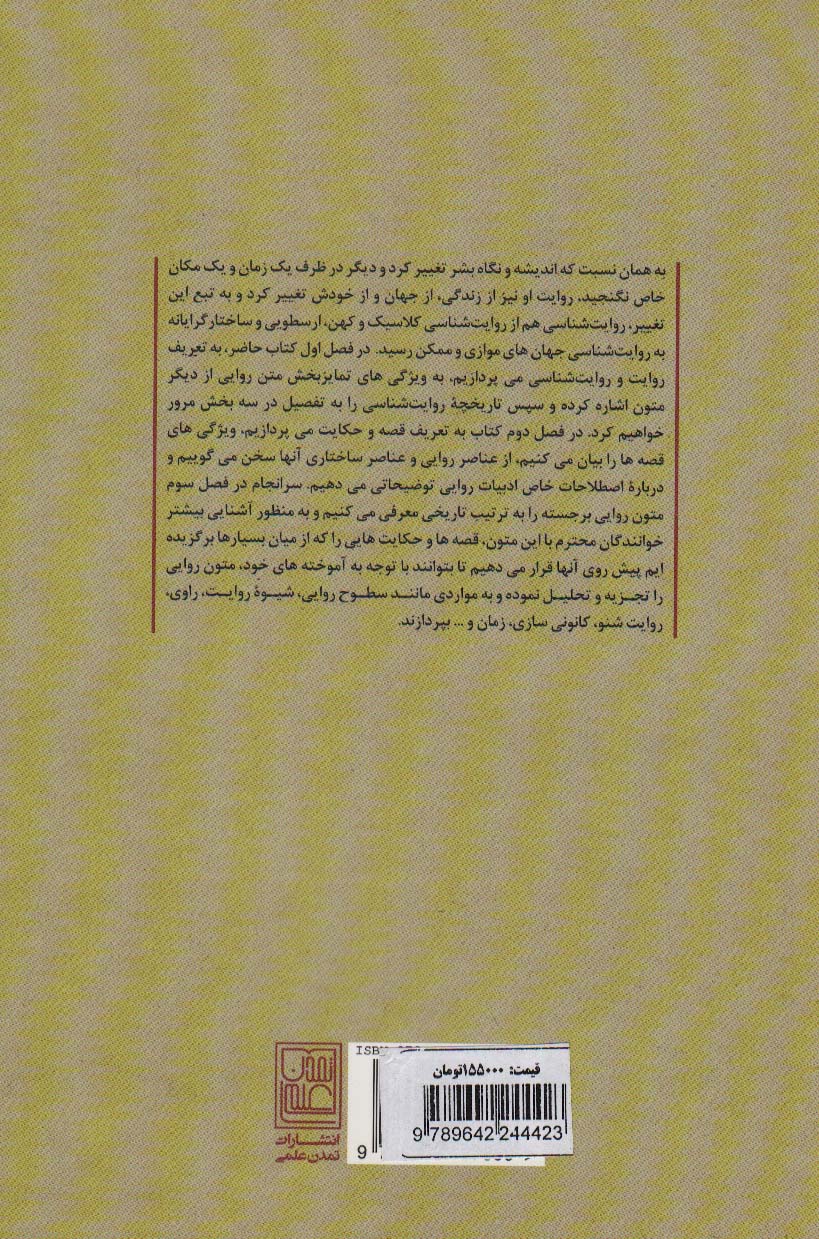 به همان نسبت که اندیشه و نگاه بشر تغییر کرد و دیگر در ظرف یک زمان و یک مکان
خاص نگنجید، روایت او نیز از زندگی، از جهان و از خودش تغییر کرد و به تبع این
تغییر، روایت‌شناسی هم از روایت‌شناسی کلاسیک و کهن، ارسطویی و ساختارگرایانه
به روایت‌شناسی جهان های موازی و ممکن رسید. در فصل اول کتاب حاضر، به تعریف
روایت و روایت‌شناسی می پردازیم، به ویژگی های تمایزبخش متن روایی از دیگر
متون اشاره کرده و سپس تاریخچهٔ روایت‌شناسی را به تفصیل در سه بخش مرور
خواهیم کرد. در فصل دوم کتاب به تعریف قصه و حکایت می پردازیم، ویژگی های
قصه ها را بیان می کنیم، از عناصر روایی و عناصر ساختاری آنها سخن می گوییم و
دربارهٔ اصطلاحات خاص ادبیات روایی توضیحاتی می دهیم. سرانجام در فصل سوم
متون روایی برجسته را به ترتیب تاریخی معرفی می کنیم و به منظور آشنایی بیشتر
خوانندگان محترم با این متون، قصه ها و حکایت هایی را که از میان بسیارها برگزیده
ایم پیش روی آنها قرار می دهیم تا بتوانند با توجه به آموخته های خود، متون روایی
را تجزیه و تحلیل نموده و به مواردی مانند سطوح روایی، شیوهٔ روایت، راوی،
روایت شنو، کانونی سازی، زمان و ... بپردازند.
تمدن
علمی
انتشارات
تمدن علمی
ISBN
قیمت: ۱۵۵۰۰۰تومان
9 789642 244423
9